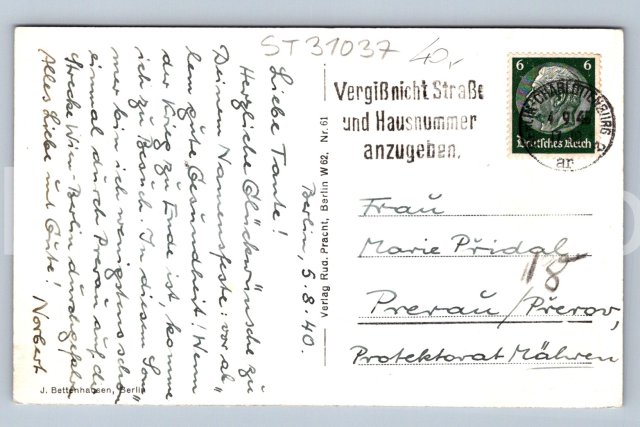 ST31037 40,-
Vergißnicht Straße
und Hausnummer
anzugeben.
6 6
Deutsches Reich
CHARLOTTENBURG
ar
Berlin, 5.8.40.
Liebe Tante!
Herzliche Glückwünsche zu
Deinem Namensfeste: vor al-
lem gute Gesundheit! Wenn
der Krieg zu Ende ist, komme
ich zu Besuch. In diesem Som-
mer bin ich wenigstens schon
einmal durch Prerau auf der
Strecke Wien-Berlin durchgefahren
Alles Liebe und Gute!
Norbert
Verlag Rud. Pracht, Berlin W 62, Nr. 61
J. Bettenhausen, Berlin
Frau
Marie Přidal
18
Prerau/Přerov,
Protektorat Mähren